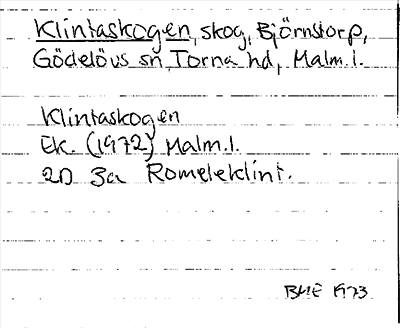 Klintaskogen, skog, Björnstorp,
Gödelövs sn, Torna hd, Malm.l.
Klintaskogen
Ek. (1972) Malm.l.
2D 3a Romeleklint.
BME 1973